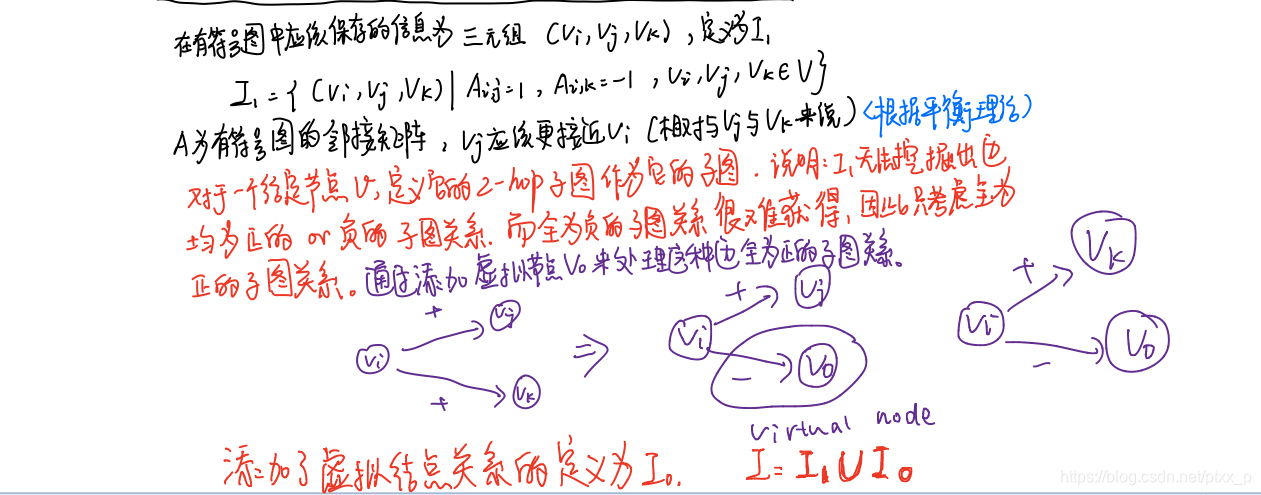 在有符号图中应该保存的信息为 三元组 (Vi, Vj, Vk), 定义为I₁
I₁ = { (Vi, Vj, Vk) | Ai,j=1, Ai,k=-1, Vi, Vj, Vk∈V }
A为有符号图的邻接矩阵, Vj应该更接近Vi (相对与Vj与Vk来说) (根据平衡理论)
对于一个给定节点V, 定义它的2-hop子图作为它的子图. 说明: I₁无法挖掘出边
均为正的 or 负的 子图关系. 而全为负的子图关系很难获得, 因此只考虑全为
正的子图关系。通过添加虚拟节点V0来处理这种边全为正的子图关系。
+ Vj + Vj + Vk
Vi ⇒ Vi Vi
+ Vk - V0 - V0
virtual node
添加了虚拟结点关系的定义为I₀. I = I₁ ∪ I₀
https://blog.csdn.net/ptxx_p